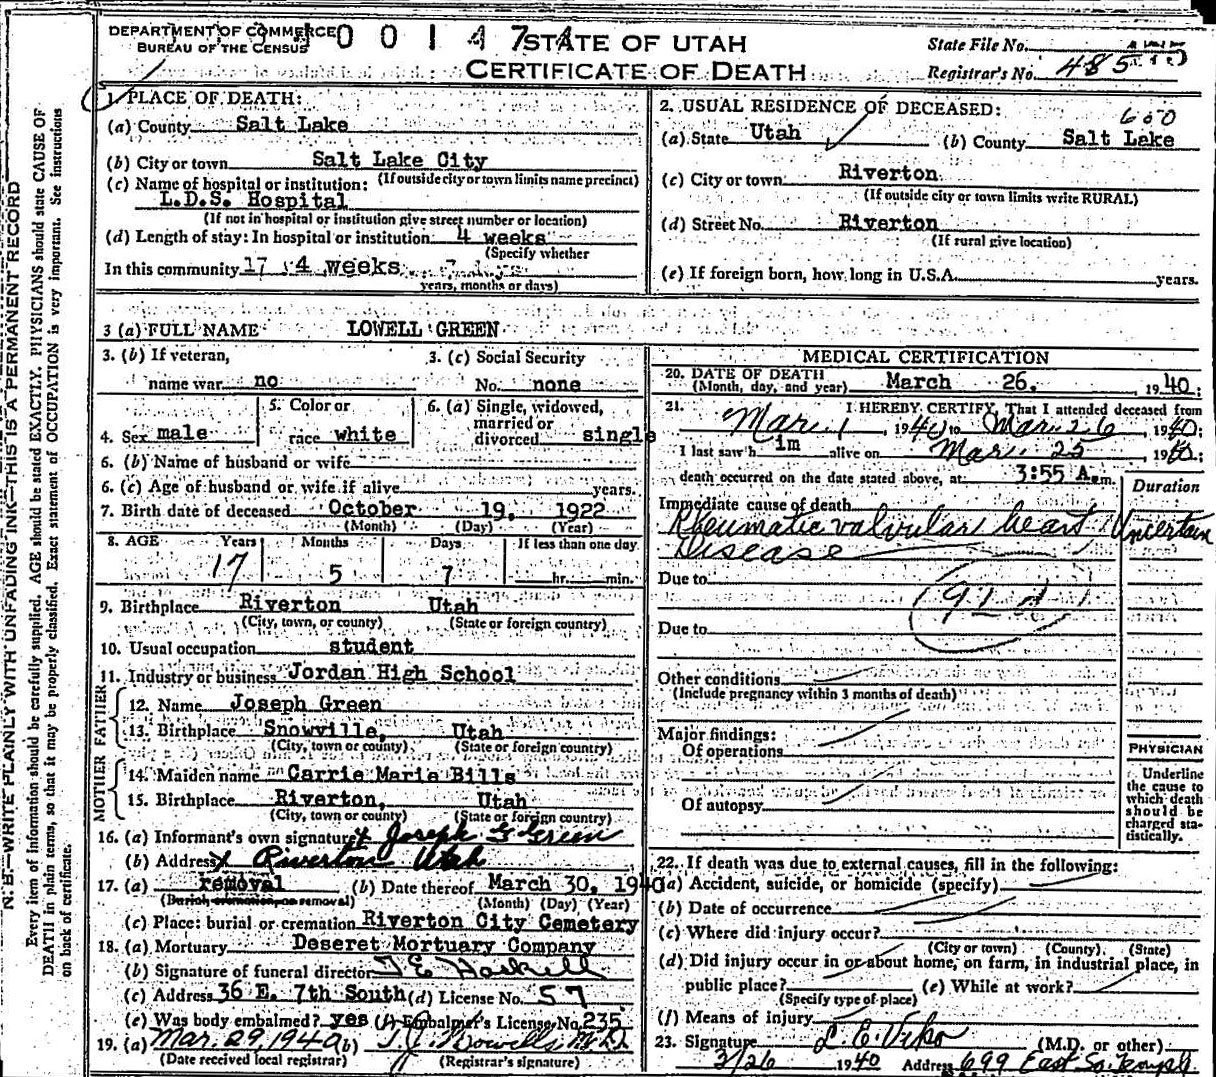 DEPARTMENT OF COMMERCE
BUREAU OF THE CENSUS
STATE OF UTAH
CERTIFICATE OF DEATH
State File No.
Registrar's No. 485
N. B.—WRITE PLAINLY WITH UNFADING INK—THIS IS A PERMANENT RECORD
Every item of information should be carefully supplied. AGE should be stated EXACTLY. PHYSICIANS should state CAUSE OF
DEATH in plain terms, so that it may be properly classified. Exact statement of OCCUPATION is very important. See instructions
on back of certificate.
1. PLACE OF DEATH:
(a) County Salt Lake
(b) City or town Salt Lake City
(If outside city or town limits name precinct)
(c) Name of hospital or institution:
L.D.S. Hospital
(If not in hospital or institution give street number or location)
(d) Length of stay: In hospital or institution 4 weeks
(Specify whether
In this community 17 4 weeks
years, months or days)
2. USUAL RESIDENCE OF DECEASED:
600
(a) State Utah (b) County Salt Lake
(c) City or town Riverton
(If outside city or town limits write RURAL)
(d) Street No. Riverton
(If rural give location)
(e) If foreign born, how long in U.S.A. years.
3 (a) FULL NAME LOWELL GREEN
3. (b) If veteran,
name war no
3. (c) Social Security
No. none
4. Sex male
5. Color or
race white
6. (a) Single, widowed,
married or
divorced single
6. (b) Name of husband or wife
6. (c) Age of husband or wife if alive years.
7. Birth date of deceased October 19, 1922
(Month) (Day) (Year)
8. AGE Years Months Days If less than one day
17 5 7 hr. min.
9. Birthplace Riverton Utah
(City, town, or county) (State or foreign country)
10. Usual occupation student
11. Industry or business Jordan High School
FATHER
12. Name Joseph Green
13. Birthplace Snowville, Utah
(City, town or county) (State or foreign country)
MOTHER
14. Maiden name Carrie Maria Bills
15. Birthplace Riverton, Utah
(City, town or county) (State or foreign country)
16. (a) Informant's own signature Joseph G Green
(b) Address Riverton Utah
17. (a) removal (b) Date thereof March 30, 1940
(Burial, cremation, or removal) (Month) (Day) (Year)
(c) Place: burial or cremation Riverton City Cemetery
18. (a) Mortuary Deseret Mortuary Company
(b) Signature of funeral director T E Haskell
(c) Address 36 E. 7th South (d) License No. 57
(e) Was body embalmed? yes (f) Embalmer's License No. 235
19. (a) Mar. 29, 1940 (b)
(Date received local registrar) (Registrar's signature)
MEDICAL CERTIFICATION
20. DATE OF DEATH
(Month, day, and year) March 26, 1940;
21. I HEREBY CERTIFY, That I attended deceased from
Mar. 1, 1940 to Mar. 26, 1940;
I last saw h im alive on Mar. 25 1940;
death occurred on the date stated above, at 3:55 A.m.
Duration
Immediate cause of death
Rheumatic valvular heart Uncertain
Disease
Due to
Due to
Other conditions
(Include pregnancy within 3 months of death)
Major findings:
Of operations
Of autopsy
PHYSICIAN
Underline
the cause to
which death
should be
charged sta-
tistically.
22. If death was due to external causes, fill in the following:
(a) Accident, suicide, or homicide (specify)
(b) Date of occurrence
(c) Where did injury occur?
(City or town) (County) (State)
(d) Did injury occur in or about home, on farm, in industrial place, in
public place? (e) While at work?
(Specify type of place)
(f) Means of injury
23. Signature L. E. Viko (M.D. or other)
3/26 1940 Address 699 East So. Temple